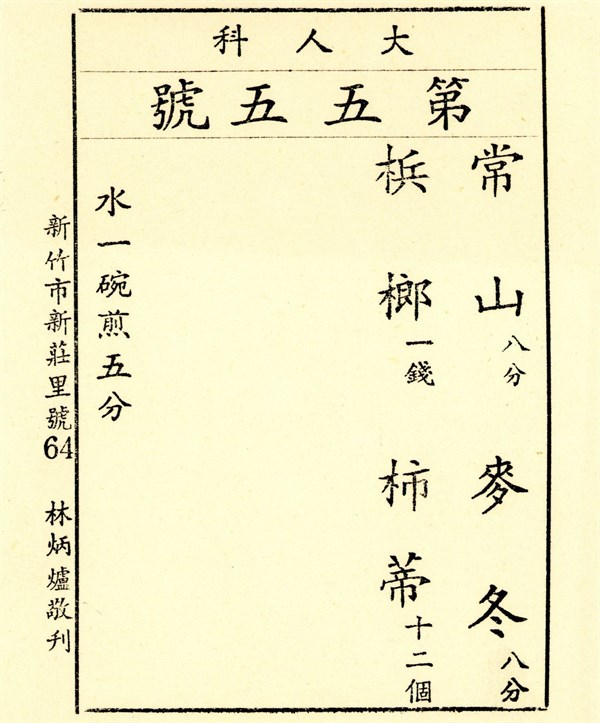 大人科
第五五號
常山八分 麥冬八分
梹榔一錢 柿蒂十二個
水一碗煎五分
新竹市新莊里64號 林炳爐敬刊